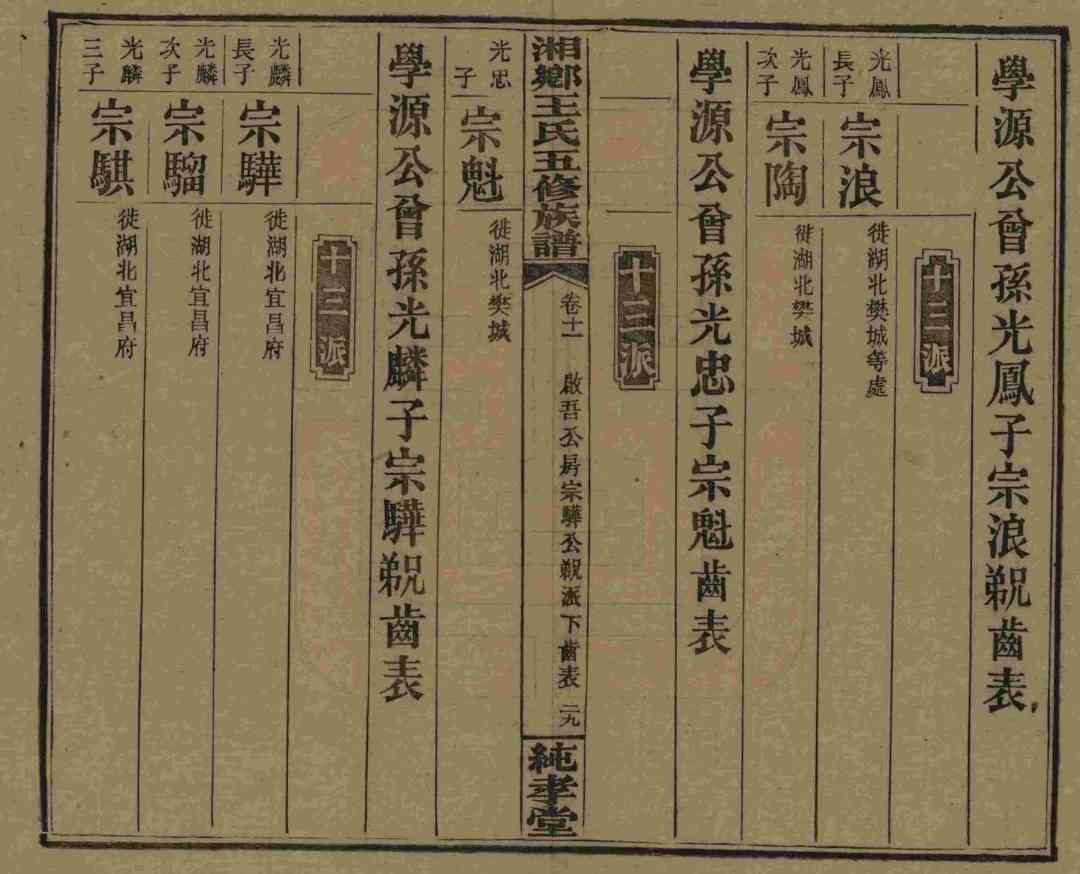 學源公曾孫光鳳子宗浪觬齒表
十三派
光鳳長子
宗浪
徙湖北樊城等處
光鳳次子
宗陶
徙湖北樊城
學源公曾孫光忠子宗魁齒表
十三派
湘鄉王氏五修族譜
卷十一
啟吾公房宗驊公觬派下齒表
二九
純孝堂
光忠子
宗魁
徙湖北樊城
學源公曾孫光麟子宗驊觬齒表
十三派
光麟長子
宗驊
徙湖北宜昌府
光麟次子
宗騮
徙湖北宜昌府
光麟三子
宗騏
徙湖北宜昌府